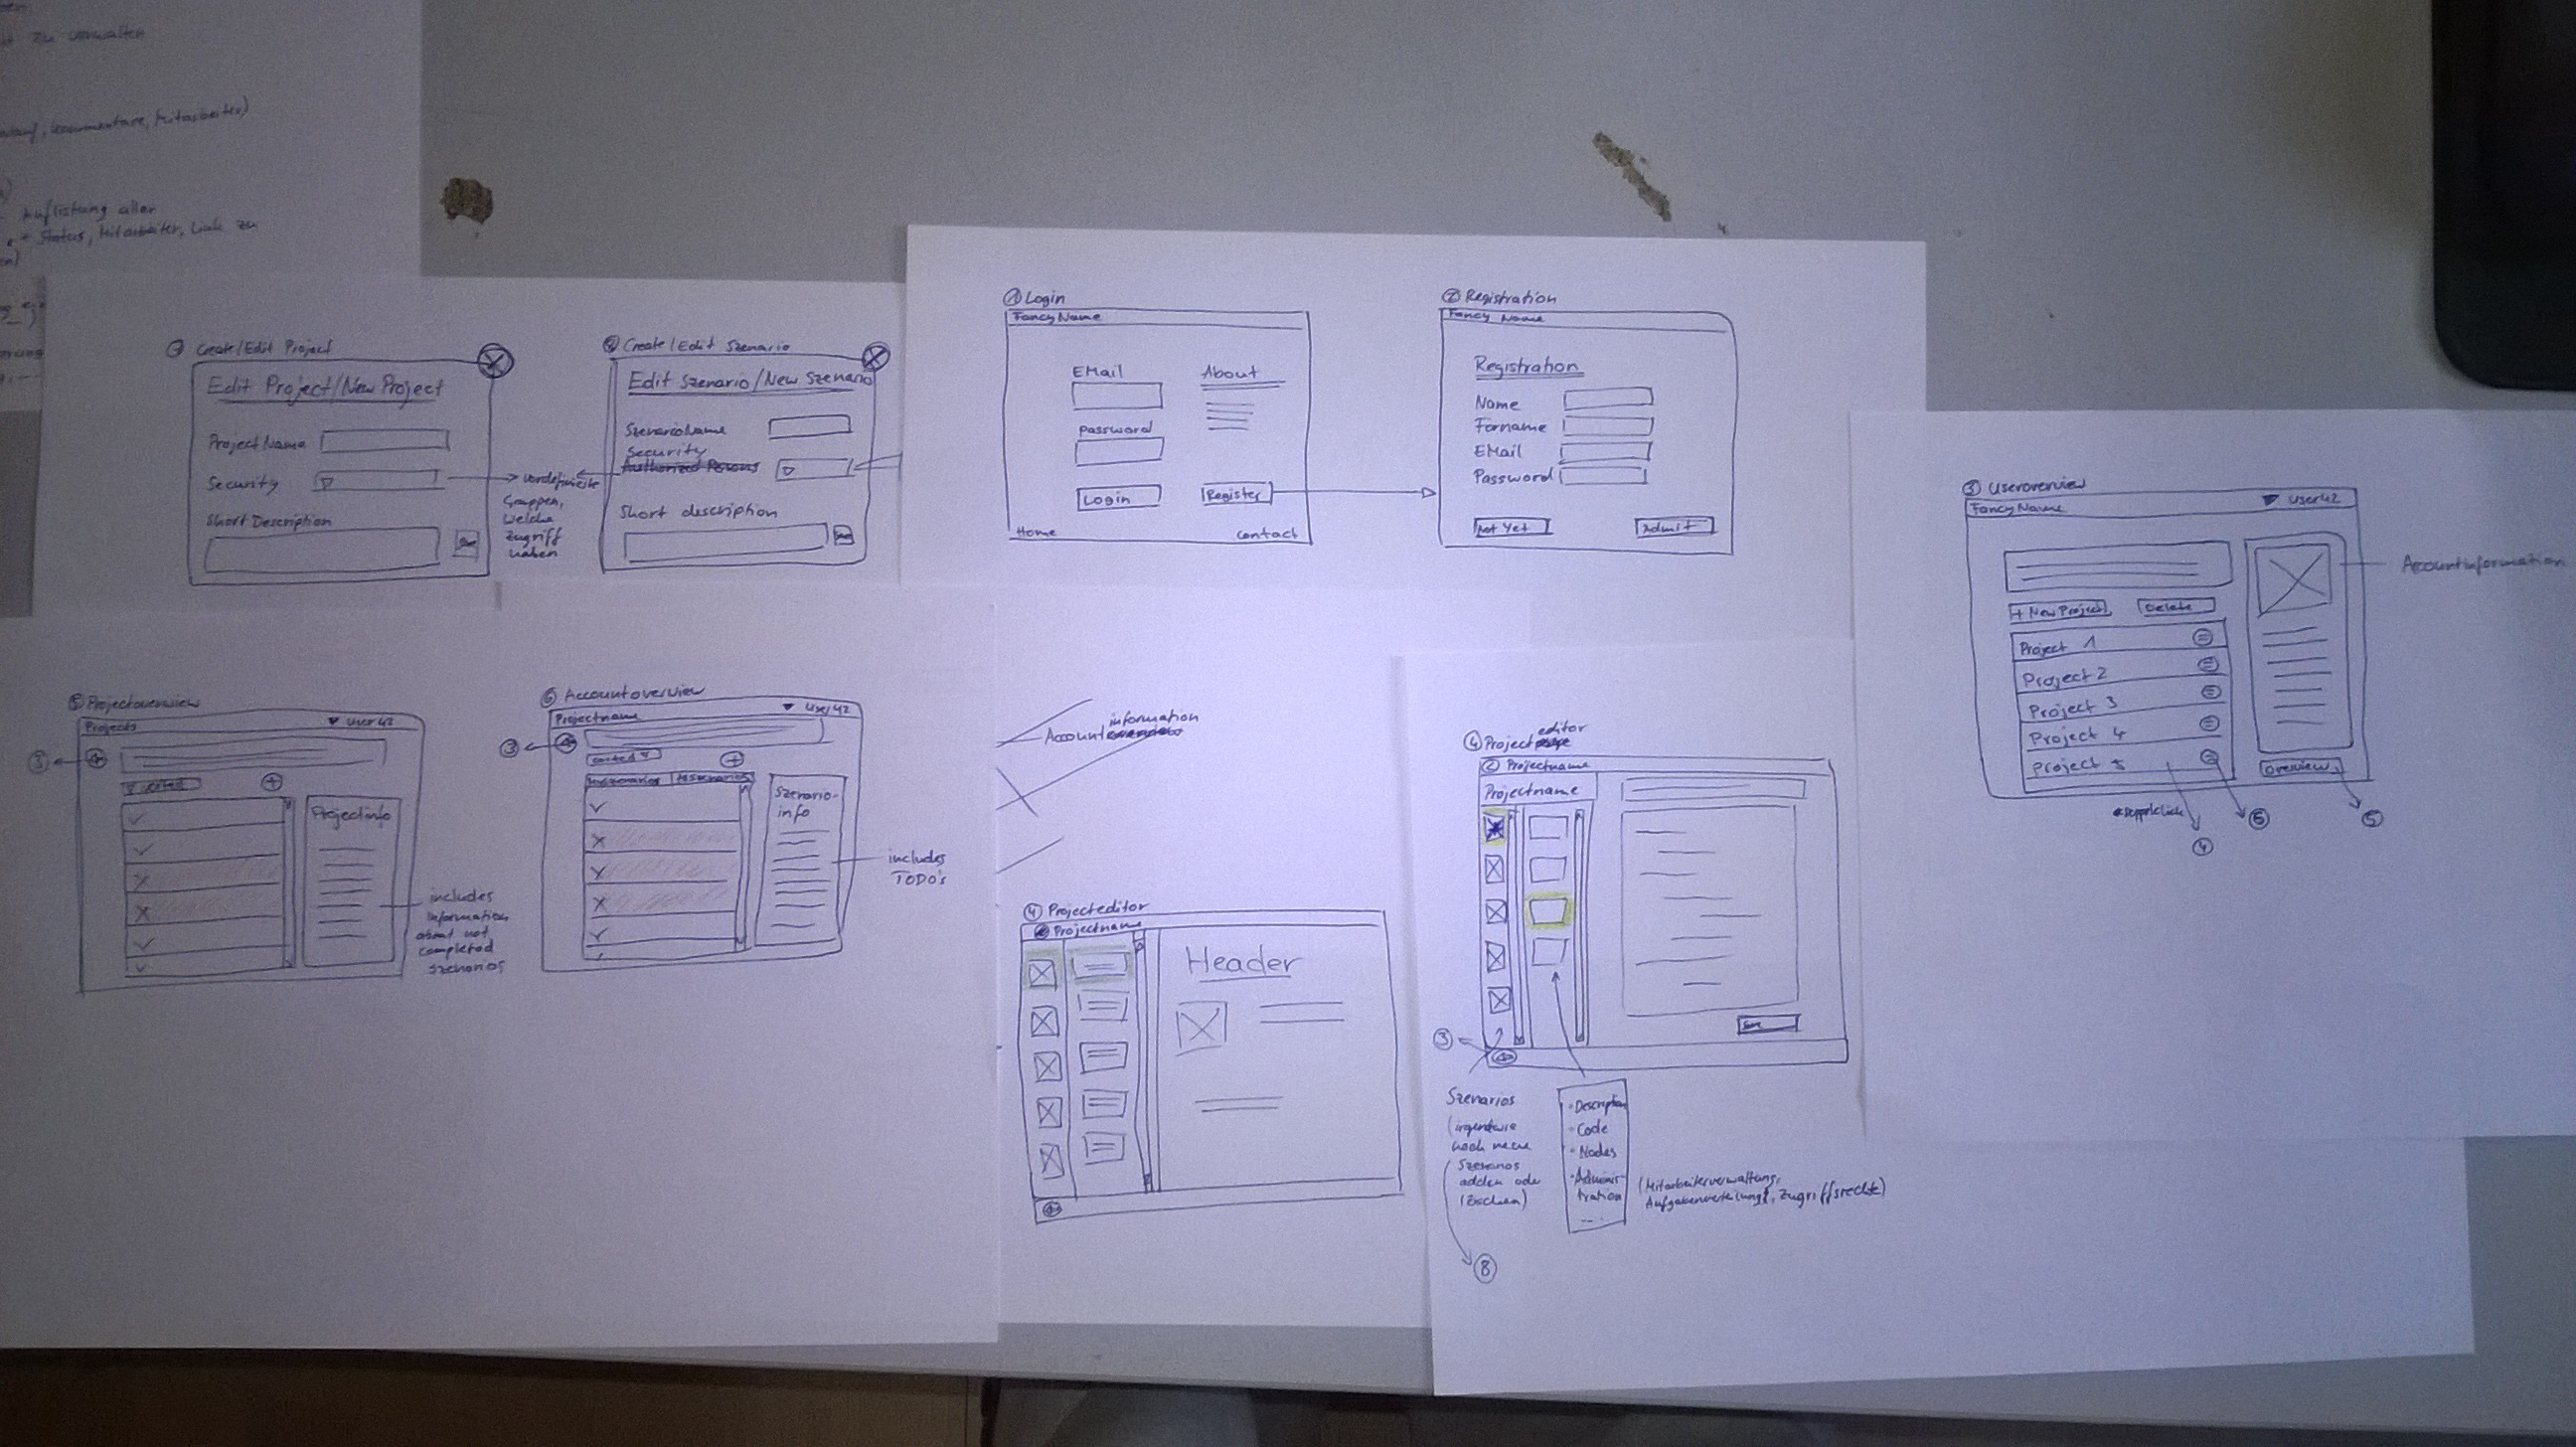 zu verwalten
kommentare, Mitarbeiter)
Auflistung aller
+ Status, Mitarbeiter, Link zu
⑦ Create/Edit Project
Edit Project/New Project
ProjectName
Security
Short Description
vordefinierte
Gruppen,
welche
zugriff
haben
⑧ Create/Edit Szenario
Edit Szenario/New Szenario
SzenarioName
Security
Authorized Persons
Short description
① Login
FancyName
EMail
password
Login
About
Register
Home
contact
② Registration
Fancy Name
Registration
Name
Forname
EMail
Password
Not Yet
Admit
③ Useroverview
FancyName
User42
+ New Project
Delete
Project 1
Project 2
Project 3
Project 4
Project 5
Overview
Accountinformation
④
⑥
⑤
⑤ Projectoverview
Projects
User42
③
sorted
Projectinfo
includes
information
about not
completed
szenarios
⑥ Accountoverview
Projectname
User42
③
sorted
Szenario-
info
includes
TODO's
information
Account
④ Projecteditor
Projectname
Header
editor
④ Project
Projectname
Projectname
Save
③
Szenarios
(irgendwie
noch neue
Szenarios
adden oder
löschen)
⑧
· Description
· Code
· Nodes
· Adminis-
tration
...
(Mitarbeiterverwaltung,
Aufgabenverteilung, Zugriffsrechte)